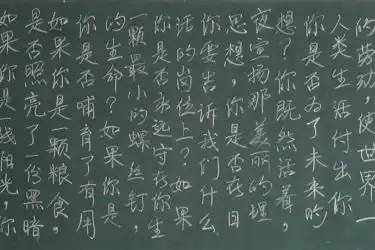 如果你是一线阳光,你
是否照亮了一份黑暗
如果你是一颗粮食,
你是否哺育了有用
的生命?如果你是
一颗最小的螺丝钉,
你是否永远守在你生
活的岗位上?如果
你要告诉我们什么
思想,你是否在日
夜宣扬那美丽的理
想?你既然活着,
你是否为了未来的
人类生活付出你
的劳动,使世界一